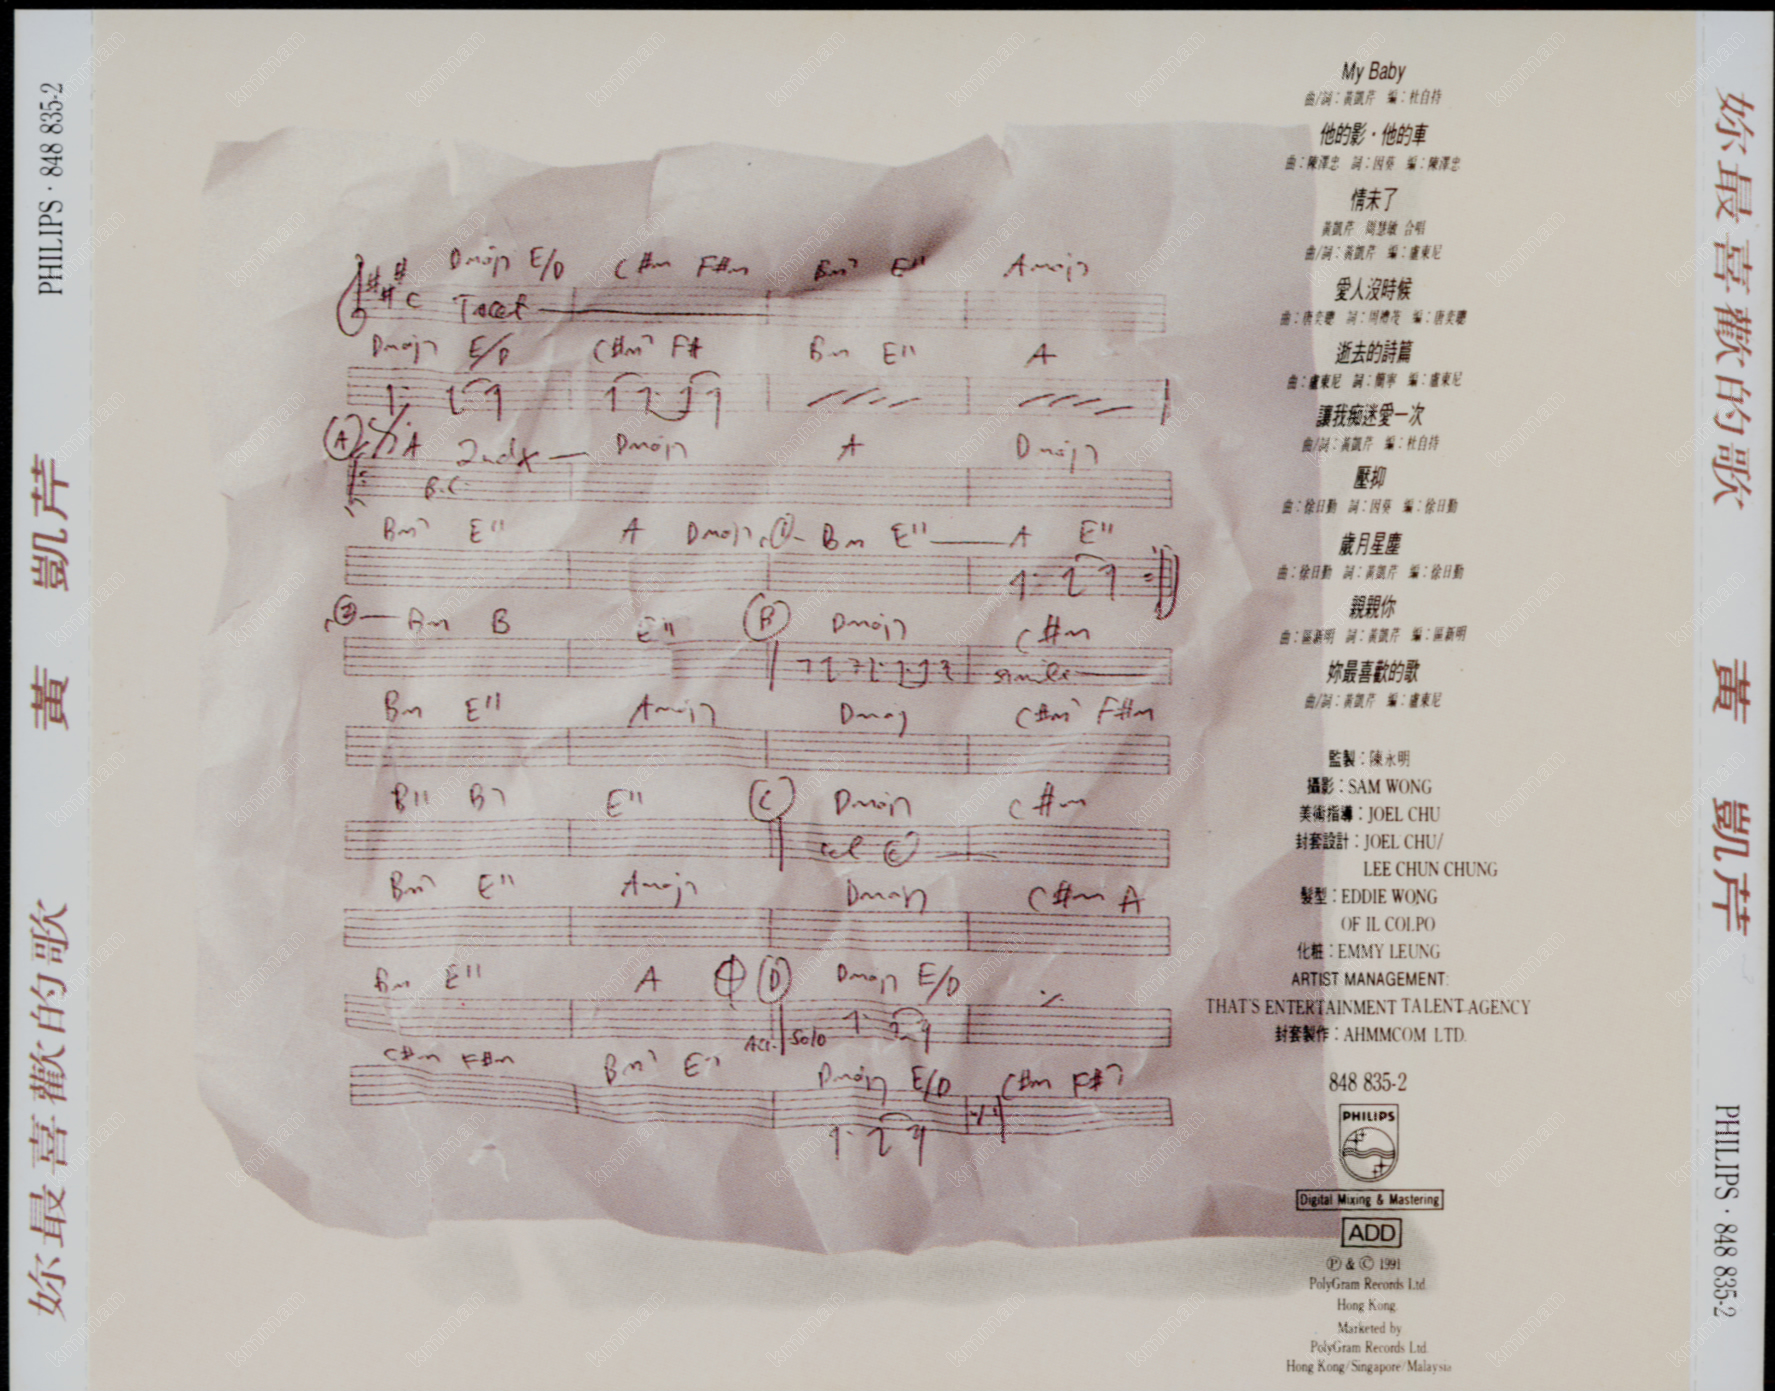 PHILIPS · 848 835-2
黃 凱芹
妳最喜歡的歌
Dmaj7 E/D C#m F#m Bm7 E11 Amaj7
C Tacet
Dmaj7 E/D C#m7 F# Bm E11 A
A A 2ndx Dmaj7 A Dmaj7
Bm7 E11 A Dmaj7 1 Bm E11 A E11
2 Bm B E11 B Dmaj7 C#m
simile
Bm E11 Amaj7 Dmaj C#m7 F#m
B11 B7 E11 C Dmaj7 C#m
Bm7 E11 Amaj7 Dmaj7 C#m A
Bm E11 A D Dmaj7 E/D
Solo
C#m F#m Bm7 E7 Dmaj7 E/D C#m F#7
My Baby
曲/詞：黃凱芹 編：杜自持
他的影·他的車
曲：陳澤忠 詞：因葵 編：陳澤忠
情未了
黃凱芹 周慧敏 合唱
曲/詞：黃凱芹 編：盧東尼
愛人沒時候
曲：唐奕聰 詞：周禮茂 編：唐奕聰
逝去的詩篇
曲：盧東尼 詞：簡寧 編：盧東尼
讓我痴迷愛一次
曲/詞：黃凱芹 編：杜自持
壓抑
曲：徐日勤 詞：因葵 編：徐日勤
歲月星塵
曲：徐日勤 詞：黃凱芹 編：徐日勤
親親你
曲：區新明 詞：黃凱芹 編：區新明
妳最喜歡的歌
曲/詞：黃凱芹 編：盧東尼
監製：陳永明
攝影：SAM WONG
美術指導：JOEL CHU
封套設計：JOEL CHU/
LEE CHUN CHUNG
髮型：EDDIE WONG
OF IL COLPO
化粧：EMMY LEUNG
ARTIST MANAGEMENT:
THAT'S ENTERTAINMENT TALENT AGENCY
封套製作：AHMMCOM LTD.
848 835-2
PHILIPS
Digital Mixing & Mastering
ADD
Ⓟ & © 1991
PolyGram Records Ltd.
Hong Kong.
Marketed by
PolyGram Records Ltd.
Hong Kong/Singapore/Malaysia
妳最喜歡的歌
黃 凱芹
PHILIPS · 848 835-2